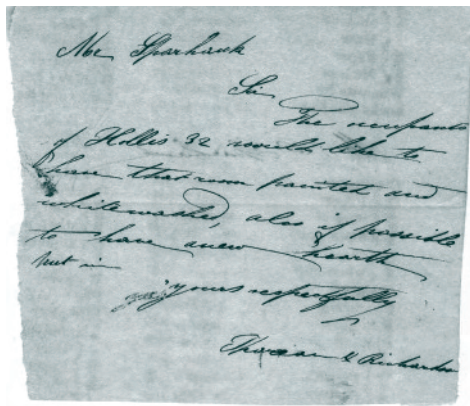 Mr Sparhawk
Sir
The occupants
of Hollis 32 would like to
have their room painted and
whitewashed, also if possible
to have a new hearth
put in
yours respectfully
& Richardson